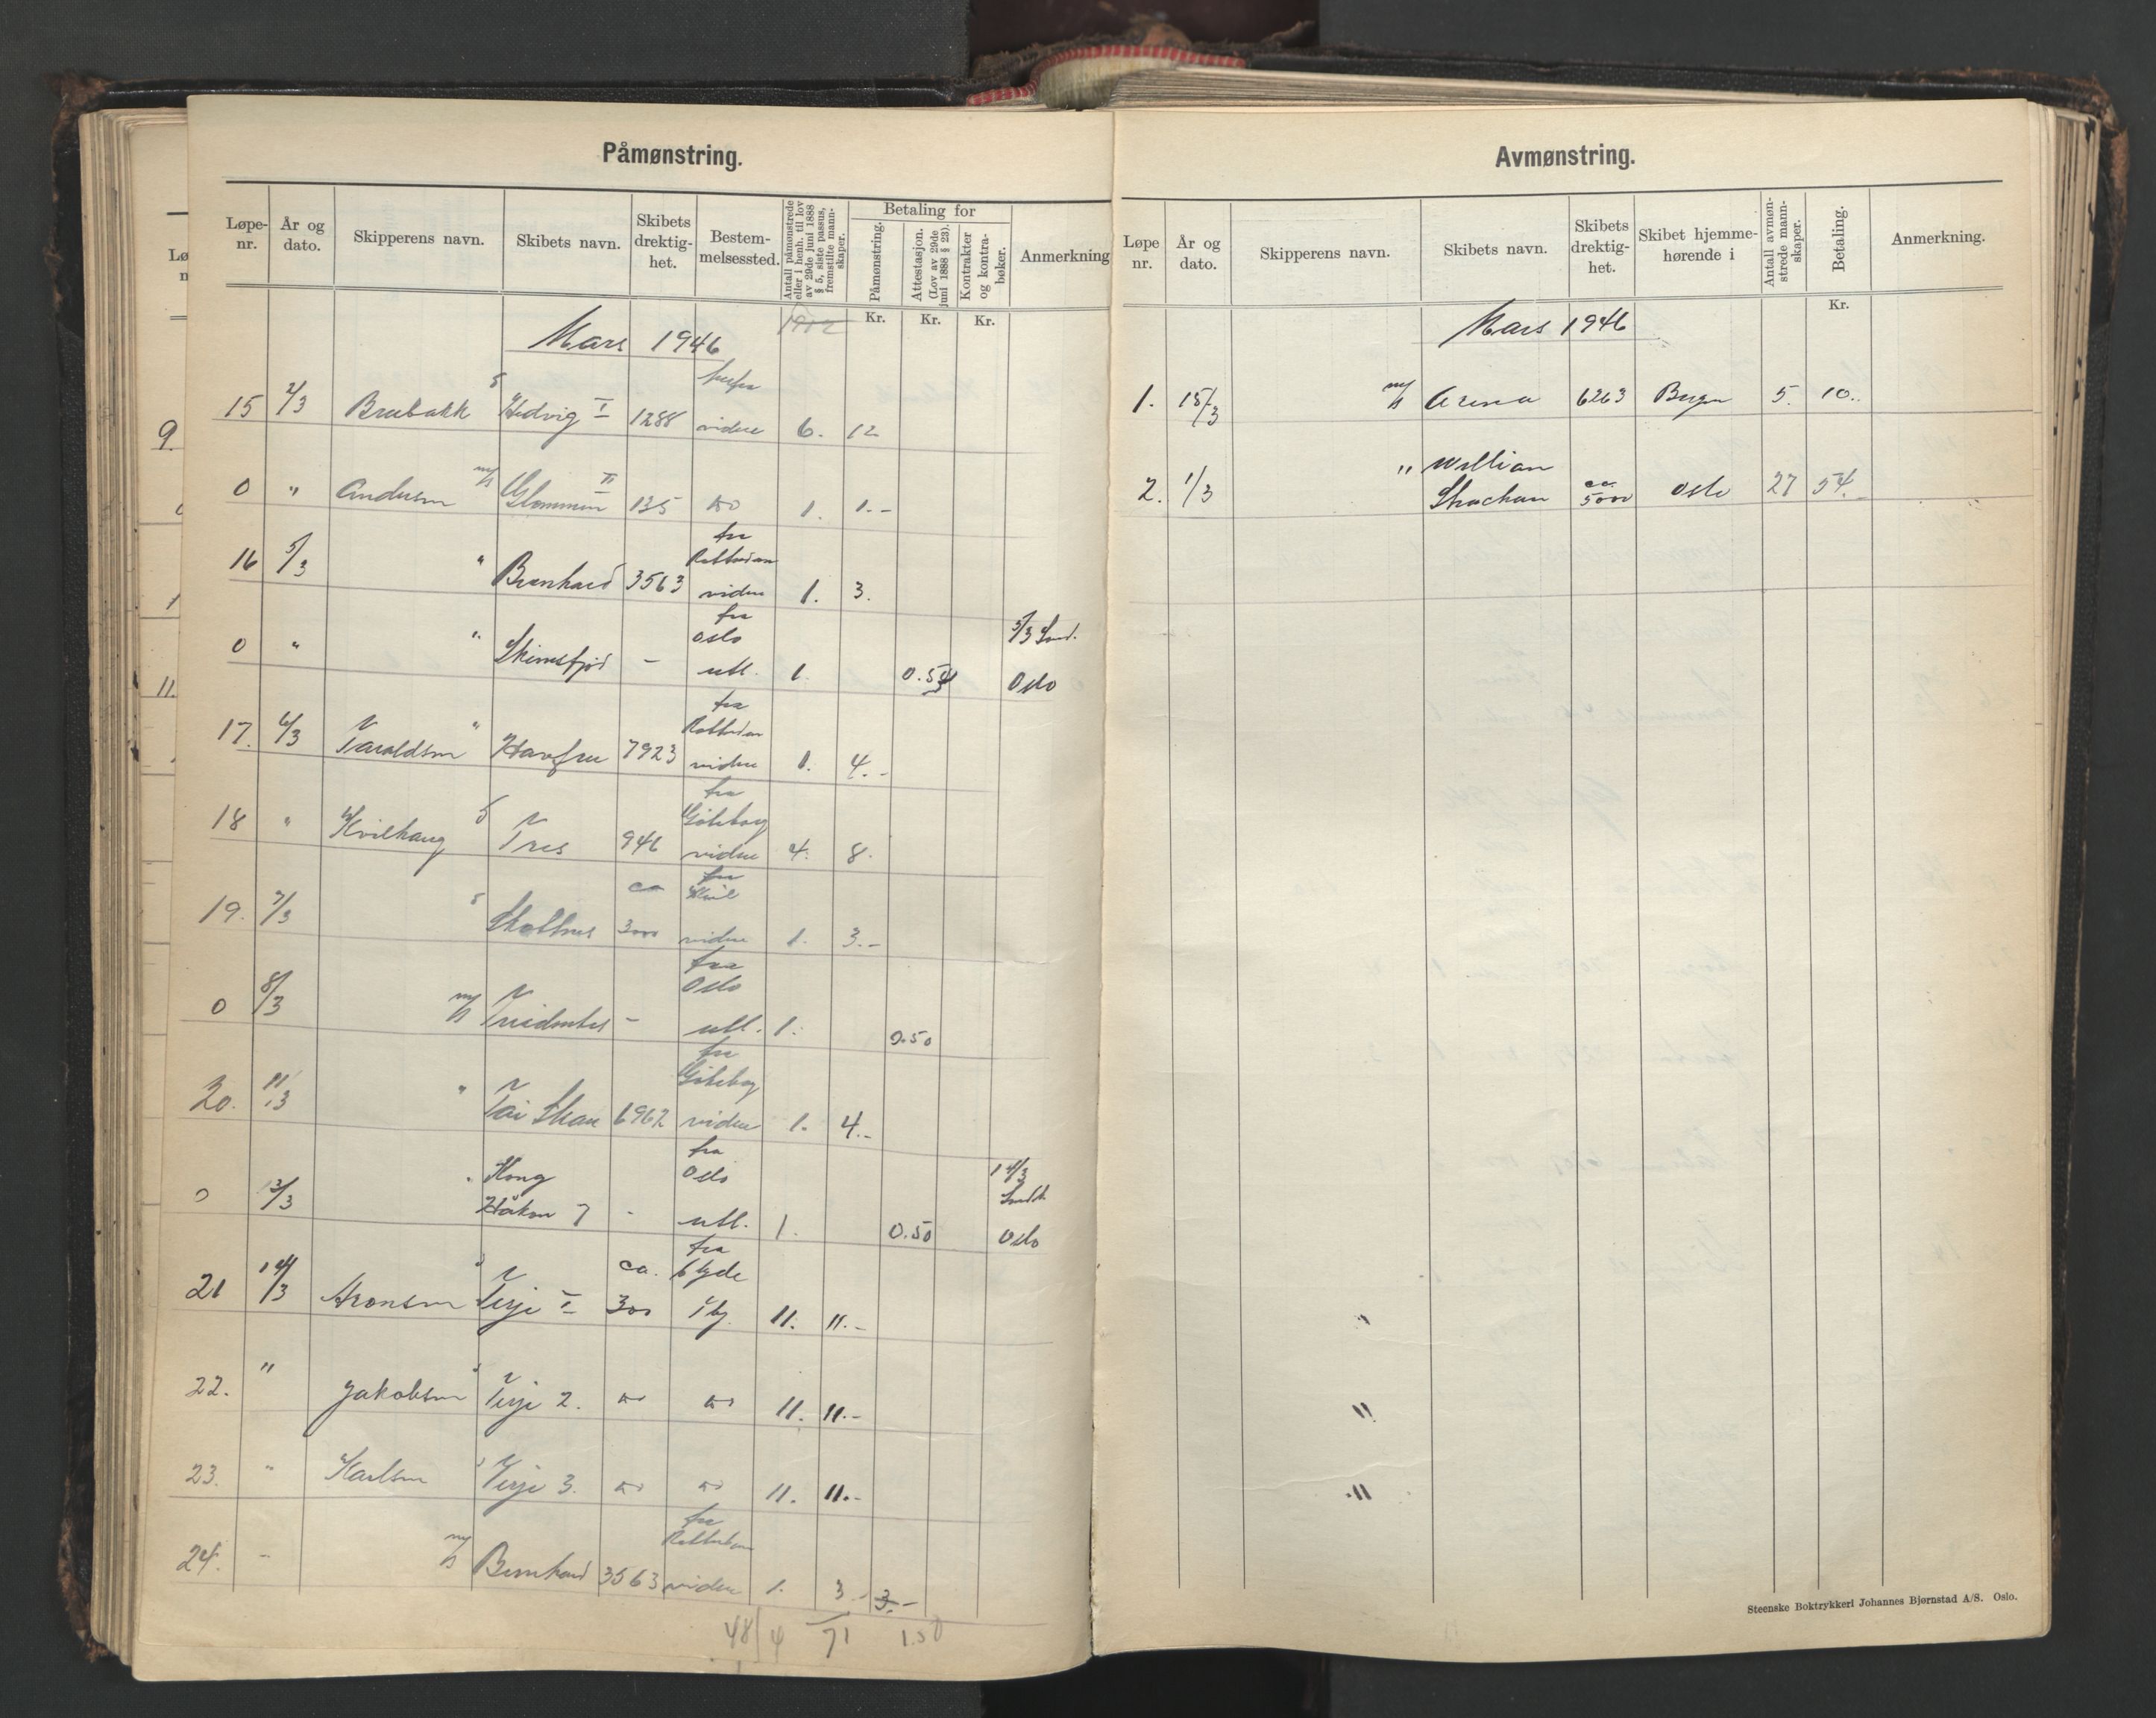 Påmønstring.
Løpe-nr. År og dato. Skipperens navn. Skibets navn. Skibets drektig-het. Bestem-melsessted. Antall påmønstrede eller i henh. til lov av 29de juni 1888 § 5, siste passus, fremstilte mann-skaper. Betaling for Påmønstring. Attestasjon. (Lov av 29de juni 1888 § 23). Kontrakter og kontra-bøker. Anmerkning
Kr. Kr. Kr.
Mars 1946
15 2/3 Brubakk S Hedvig I 1288 videre 6. 12
0 " Andersen m/s Glommen II 135 do 1. 1.-
16 5/3 " Bernhard 3563 fra Rotterdam videre 1. 3.
0 " " Skiensfjord - fra Oslo utl. 1. 0.50 5/3 Send. Oslo
17. 6/3 Taraldsen " Havfru 7923 fra Rotterdam videre 1. 4.-
18 " Kvilhaug S Tres 946 fra Göteborg videre 4. 8.
19. 7/3 S ca 3000 fra videre 1. 3.-
0 8/3 m/s - fra Oslo utl. 1. 0.50
20. 11/3 " Tai Shan 6962 fra Göteborg videre 1. 4.-
0 13/3 " Kong Håkon 7 - fra Oslo utl. 1. 0.50 14/3 Sendt Oslo
21 14/3 Aronsen Terje I ca. 300 fra 11. 11.-
22. " Jakobsen Terje 2. do do 11. 11.-
23. " Karlsen Terje 3. do do 11. 11.-
24. - m/s Bernhard 3563 fra Rotterdam videre 1. 3.- 3.-
48 4 71 1.50
Avmønstring.
Løpe nr. År og dato. Skipperens navn. Skibets navn. Skibets drektig-het. Skibet hjemme-hørende i Antall avmøn-strede mann-skaper. Betaling. Anmerkning.
Kr.
Mars 1946
1. 15/3 m/s Arena 6263 Bergen 5. 10..
2. 1/3 " William Strachan ca. 5000 Oslo 27 54.-
"
"
"
Steenske Boktrykkeri Johannes Bjørnstad A/S. Oslo.